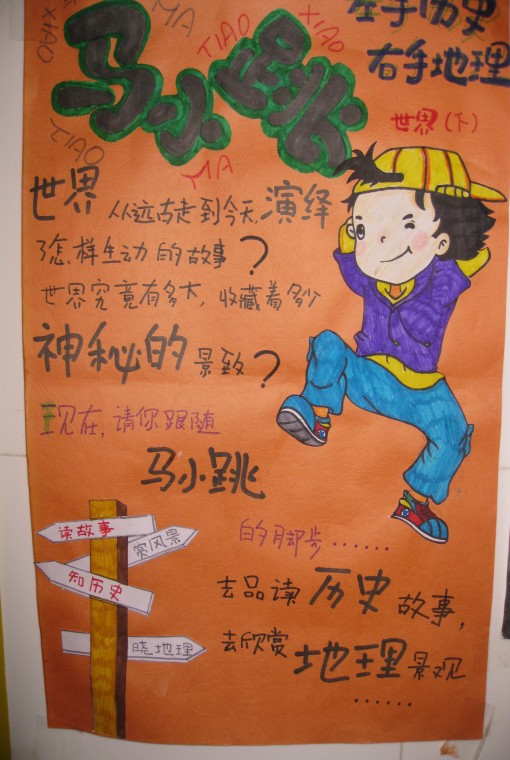 左手历史
右手地理
世界（下）
MA
XIAO
TIAO
XIAO
马小跳
TIAO
MA
世界从远古走到今天,演绎
了怎样生动的故事？
世界究竟有多大,收藏着多少
神秘的景致？
现在,请你跟随
马小跳
的脚步······
去品读历史故事,
去欣赏地理景观
······
读故事
赏风景
知历史
晓地理